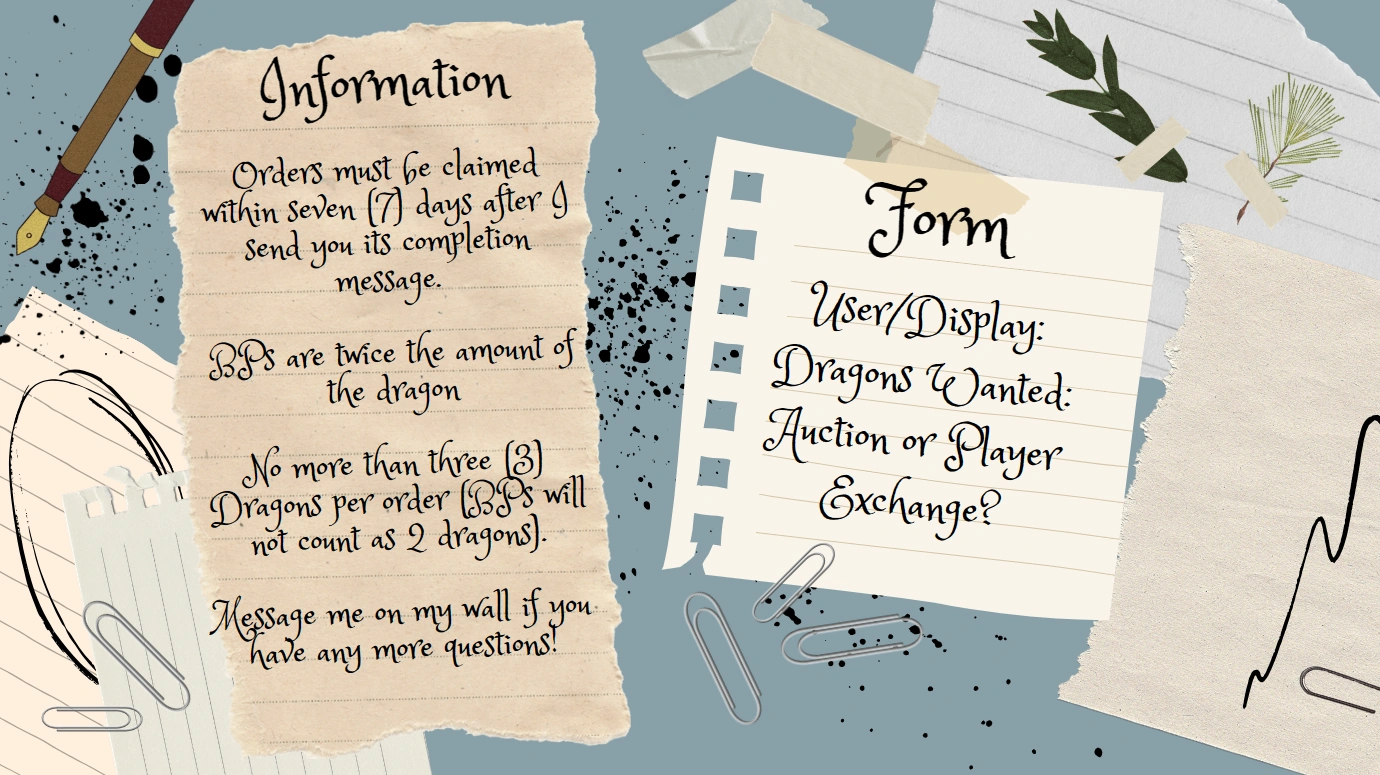 Information
Orders must be claimed
within seven (7) days after I
send you its completion
message.
BPs are twice the amount of
the dragon
No more than three (3)
Dragons per order (BPs will
not count as 2 dragons).
Message me on my wall if you
have any more questions!
Form
User/Display:
Dragons Wanted:
Auction or Player
Exchange?